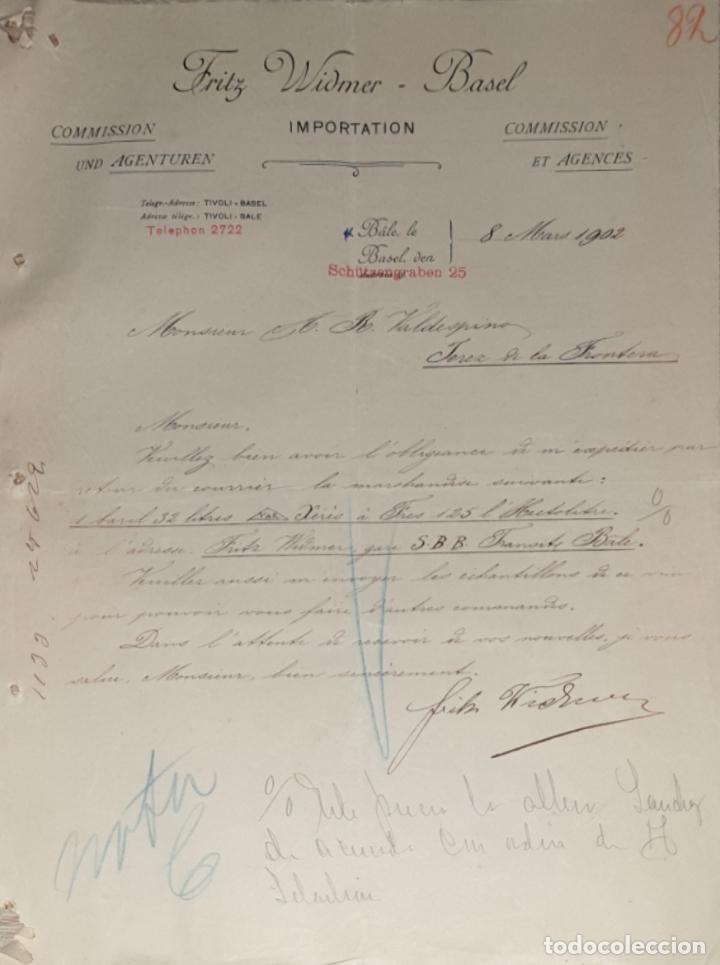 82
Fritz Widmer - Basel
COMMISSION UND AGENTUREN
IMPORTATION
COMMISSION ET AGENCES
Telegr.-Adresse: TIVOLI-BASEL
Adresse télégr.: TIVOLI-BALE
Telephon 2722
Bâle, le
Basel, den
8 Mars 1902
Schützengraben 25
Monsieur A. R. Valdespino
Jerez de la Frontera
Monsieur.
Veuillez bien avoir l'obligeance de m'expédier par
retour du courrier la marchandise suivante:
1 baril 32 litres Xérès à Frcs 125 l'Hectolitre. %
à l'adresse Fritz Widmer gare S.B.B. Transit Bâle.
Veuillez aussi m'envoyer les échantillons de ce vin
pour pouvoir vous faire d'autres commandes.
Dans l'attente de recevoir de vos nouvelles, je vous
salue, Monsieur, bien sincèrement.
Fritz Widmer
% Este precio lo
de acuerdo con
todocoleccion